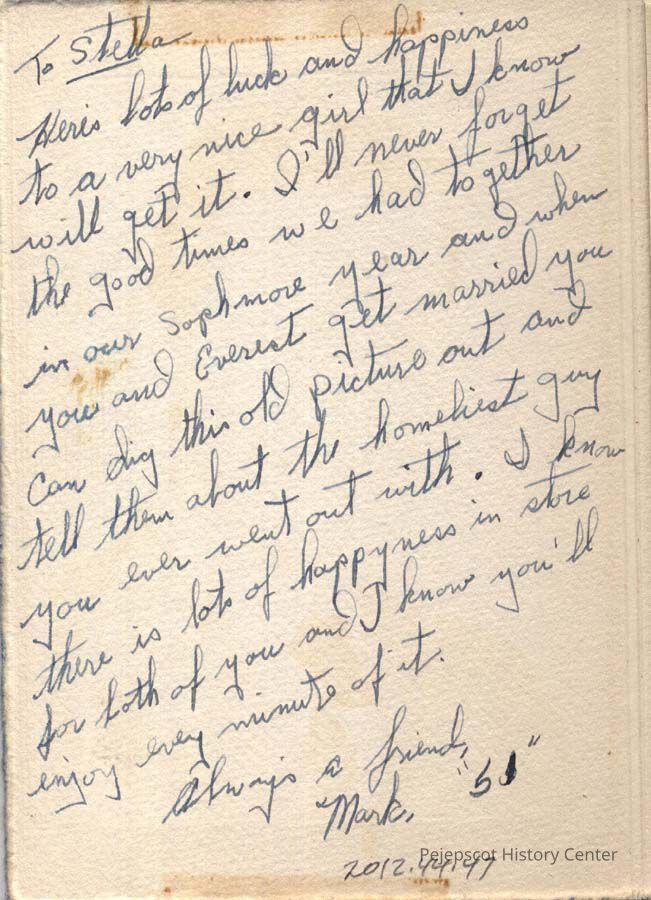 To Stella
Here's lots of luck and happiness
to a very nice girl that I know
will get it. I'll never forget
the good times we had together
in our Sophmore year and when
you and Everest get married you
can dig this old picture out and
tell them about the homeliest guy
you ever went out with. I know
there is lots of happyness in store
for both of you and I know you'll
enjoy every minute of it.
Always a friend,
Mark, "51"
Pejepscot History Center
2012.44.47